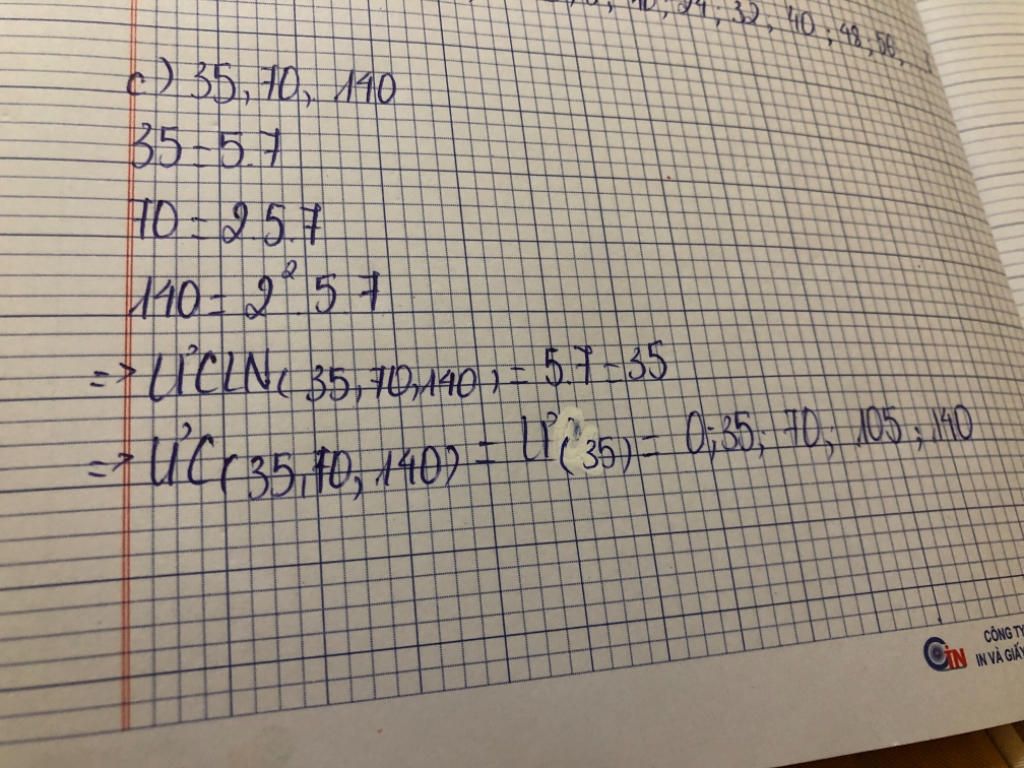 24; 32; 40; 48; 56;
c) 35, 70, 140
35 = 5.7
70 = 2.5.7
140 = 2² . 5 . 7
=> ƯCLN(35,70,140) = 5.7 = 35
=> ƯC(35,70,140) = Ư(35) = 0; 35; 70; 105; 140
CÔNG TY
IN VÀ GIẤY